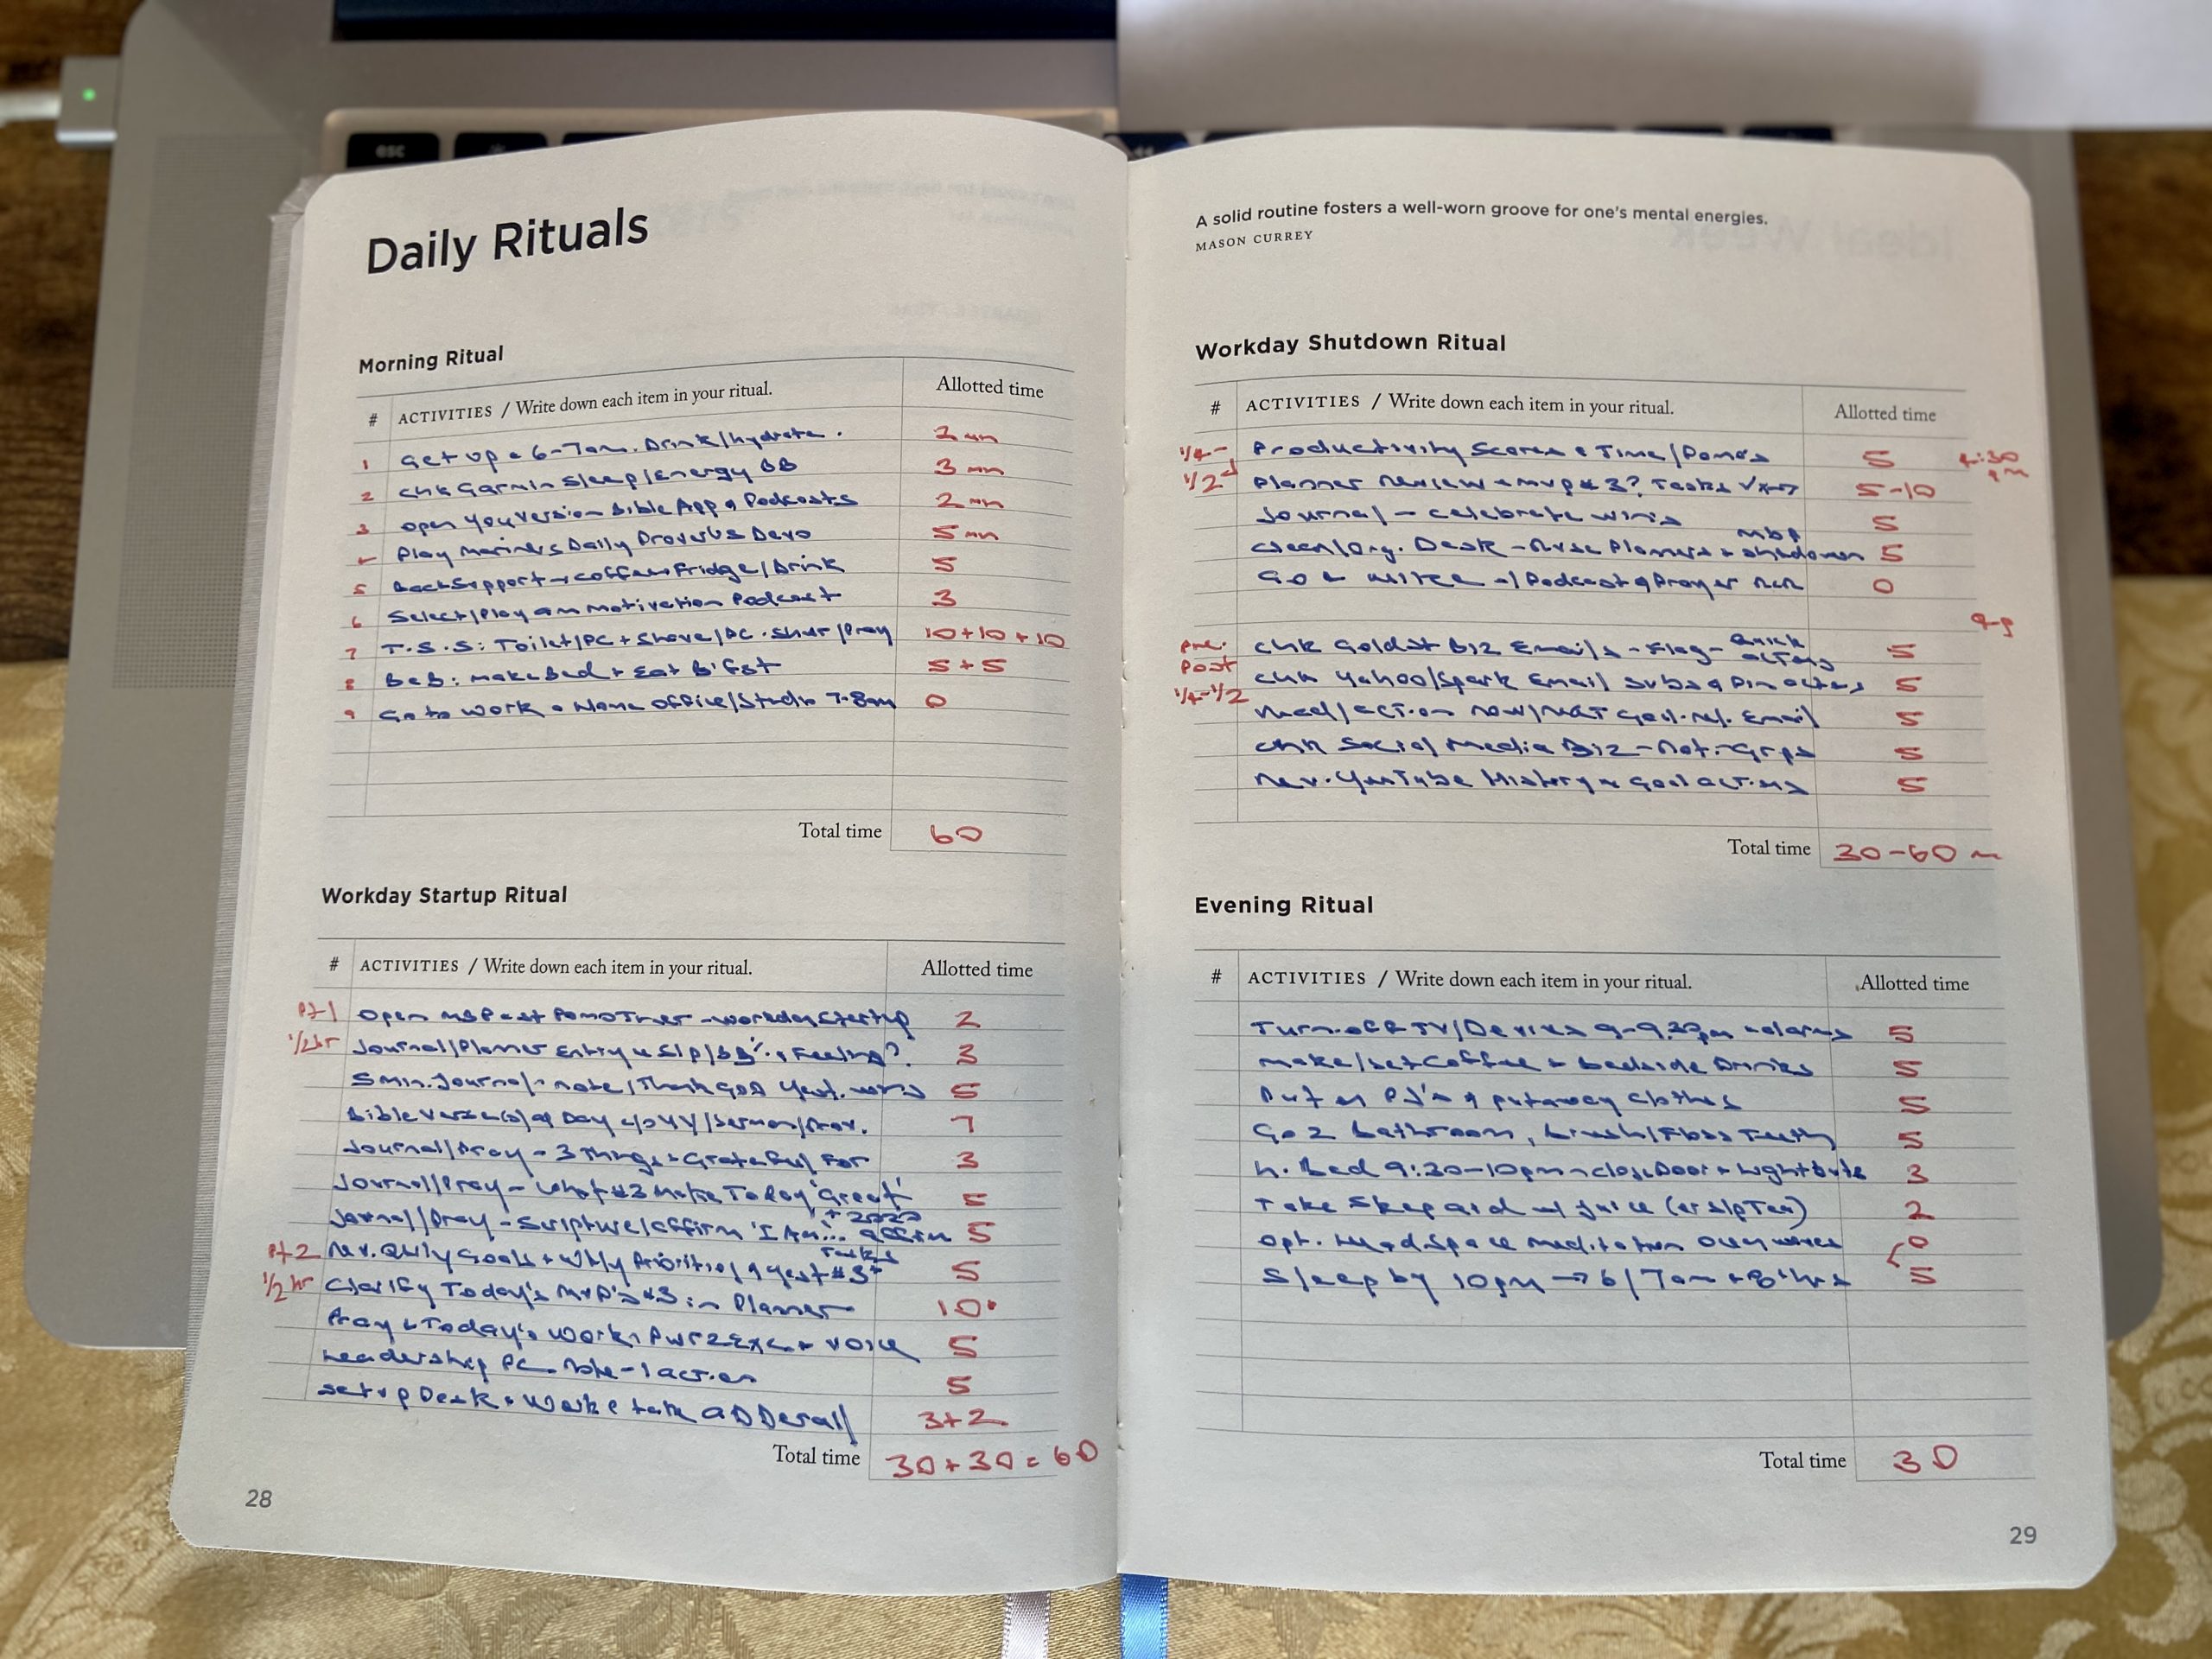 esc
Daily Rituals
Morning Ritual
# ACTIVITIES / Write down each item in your ritual. Allotted time
1 Get up 6-7am. Drink/hydrate.
2 Chk Garmin Sleep/Energy BB 3 mn
3 Open YouVersion Bible App & Podcasts 2 mn
Play Mariners Daily Proverbs Devo 5 mn
5 Back Support → Coffee → Fridge/Drink 5
6 Select/Play am Motivation Podcast 3
7 T.S.S: Toilet/PC + Shave/PC. Shwr/Pray 10+10+10
8 B&B: make Bed + Eat B'fst 5+5
9 Go to Work Home Office/Studio 7-8am 0
Total time 60
Workday Startup Ritual
# ACTIVITIES / Write down each item in your ritual. Allotted time
Pt 1 Open 2
1/2 hr Journal/Planner Entry Slp/BB% & Feeling? 3
5 min. Journal note/Thank God Yest. wins 5
Bible Verse(s) of Day YV/Sermon/Prov. 7
Journal/Pray - 3 Things Grateful For 3
Journal/Pray - What #3 Make Today 'Great' 5
+ 2023
Journal/Pray - Scripture/Affirm 'I Am... affirm 5
Tasks
Pt 2 Rev. Qtrly Goals + Wkly Priorities & Yest #3 5
1/2 hr Clarify Today's MVP's #3 in Planner 10
Pray Today's Work 5
Leadership PC. Note - 1 action 5
Setup Desk Work & take ADDerall 3+2
Total time 30+30=60
28
A solid routine fosters a well-worn groove for one's mental energies.
MASON CURREY
Workday Shutdown Ritual
# ACTIVITIES / Write down each item in your ritual. Allotted time
1/4- Productivity Scores & Time/Pomo's 5 4:30 pm
1/2 Planner Review MVP #3? Tasks 5-10
Journal - celebrate wins 5
MBP
Clean/Org. Desk - Planners + shutdown 5
Go w/ Podcast & Prayer 0
Quick
Chk Goldst Biz Emails - Flag - actions 5
Post Chk Yahoo/Spark Email subs & Pin actions 5
1/4-1/2 Need/action now/next Goal-rel. Email 5
Chk Social Media Biz - Not. - Grps 5
Rev. YouTube History Goal actions 5
Total time 30-60 m
Evening Ritual
# ACTIVITIES / Write down each item in your ritual. Allotted time
Turn-off TV/Devices 9-9.30pm alarms 5
Make/set Coffee + bedside Drinks 5
Put on PJ's & putaway clothes 5
Go 2 bathroom, brush/Floss Teeth 5
Bed 9:30-10pm close Door + Lights 3
Take Sleep aid w/ juice (or slp Tea) 2
Opt. Headspace meditation 0
Sleep by 10pm → 6/7am 8 hrs 5
Total time 30
29